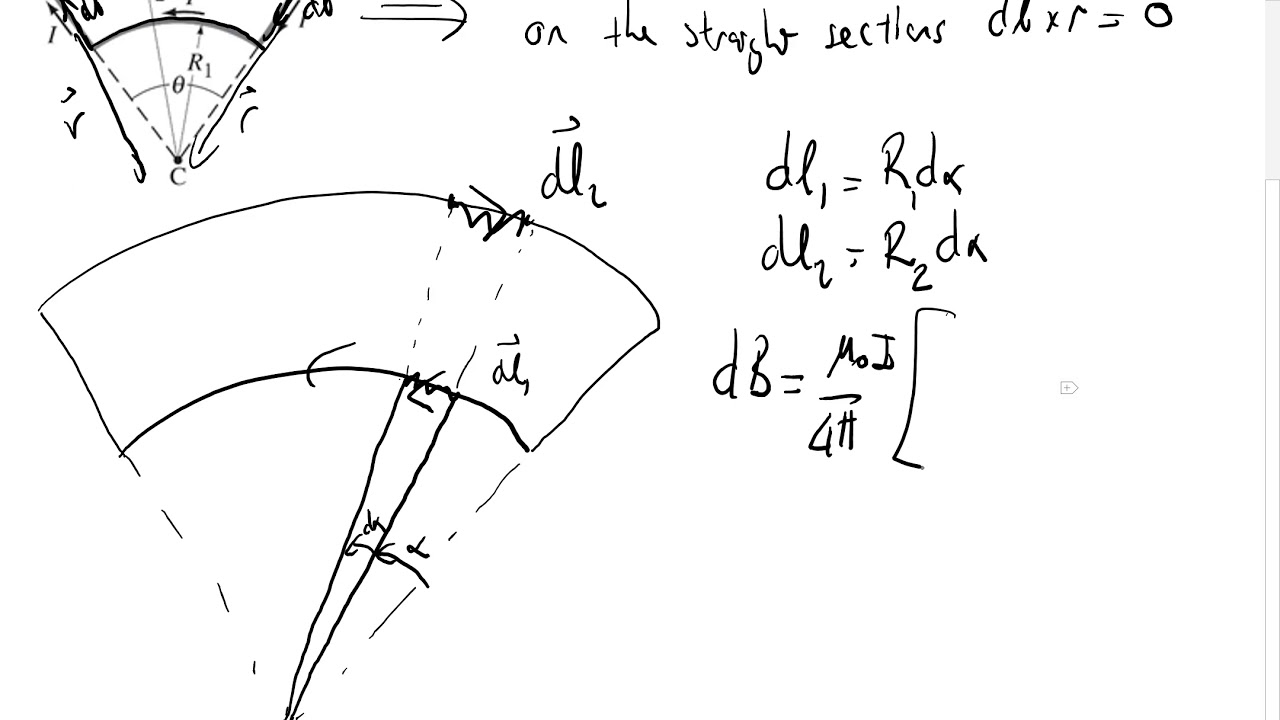 I
R₁
θ
C
r⃗
r⃗
⟹ on the straight sections dl × r = 0
d⃗l₂
dl₁ = R₁dα
dl₂ = R₂dα
d⃗l₁
dB = μ₀I/4π [
dα
α